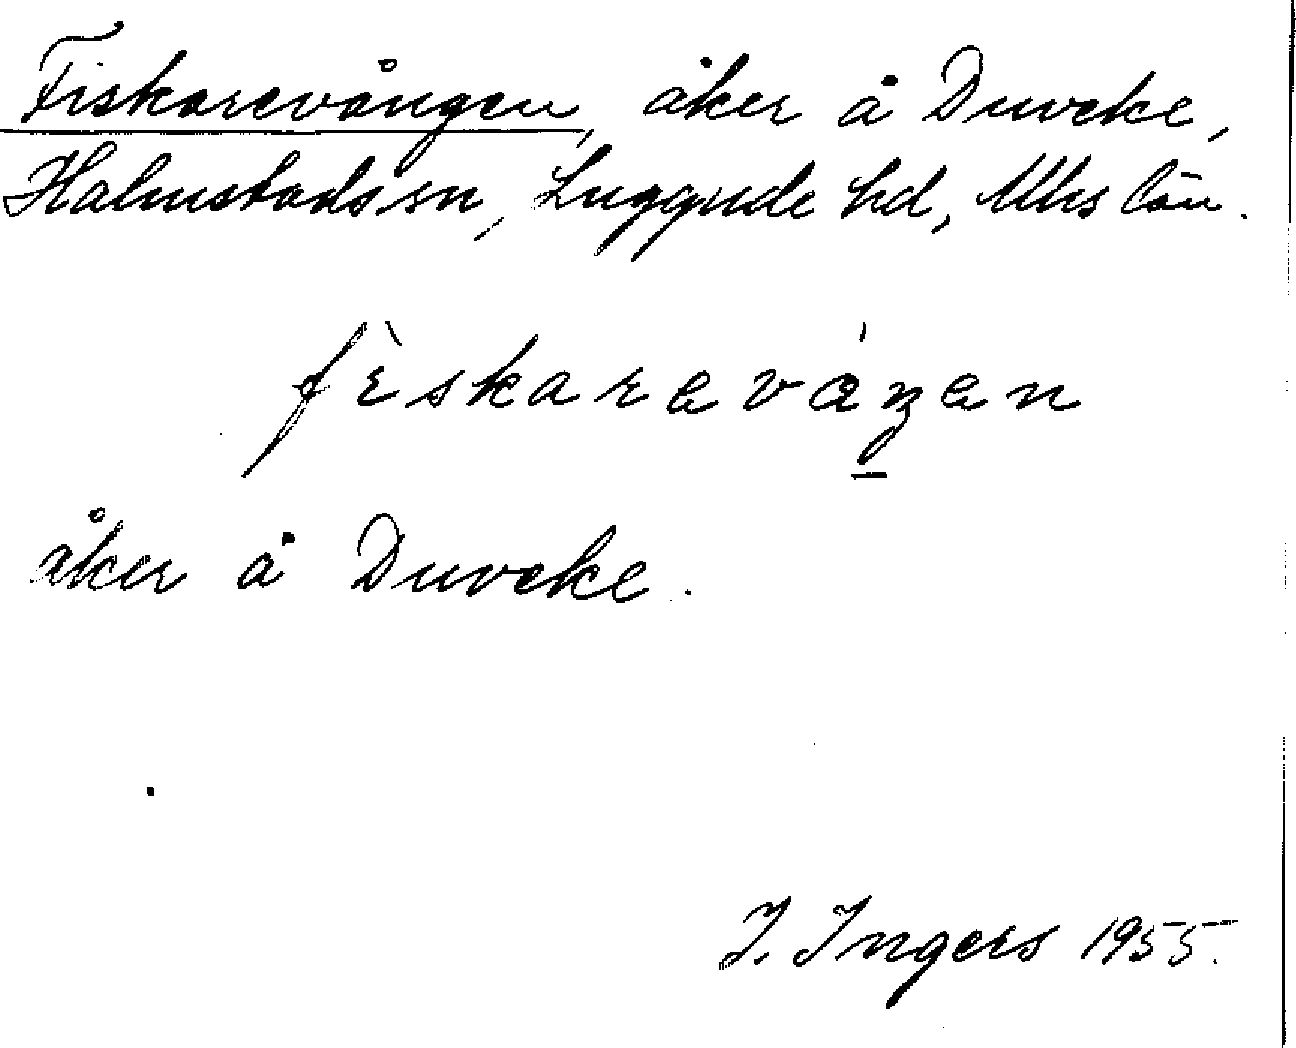 Fiskarevången, åker å Duveke,
Halmstads sn, Luggude hd, Mhs län.
fèskareváŋen
åker å Duveke.
I. Ingers 1955.